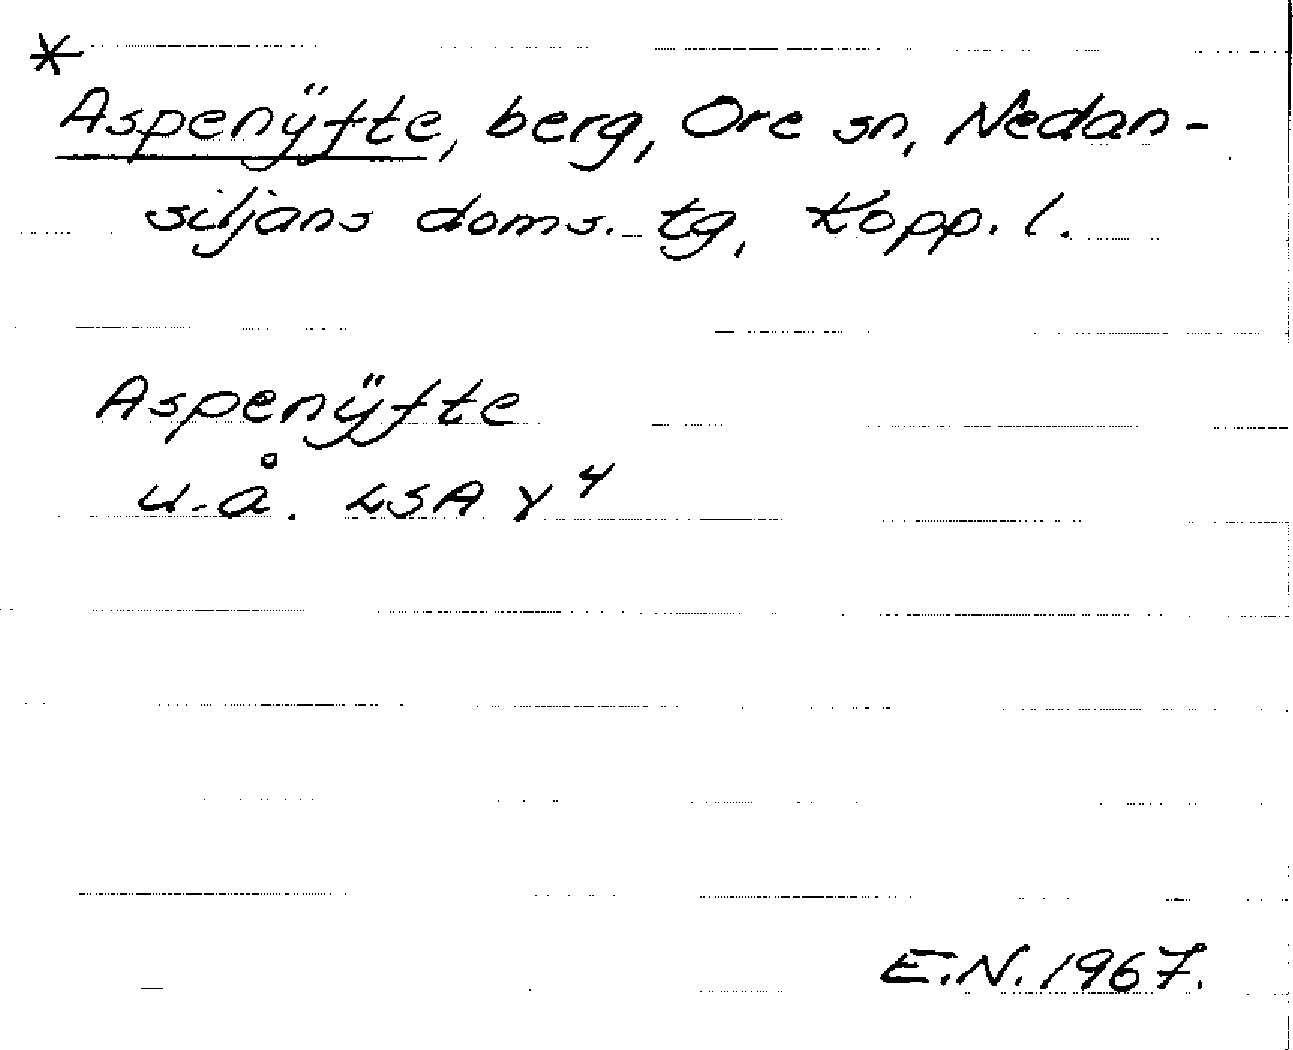 *
Aspenÿfte, berg, Ore sn, Nedan-
siljans doms. tg, Kopp. l.
Aspenÿfte
u.å. LSA Y⁴
E.N. 1967.